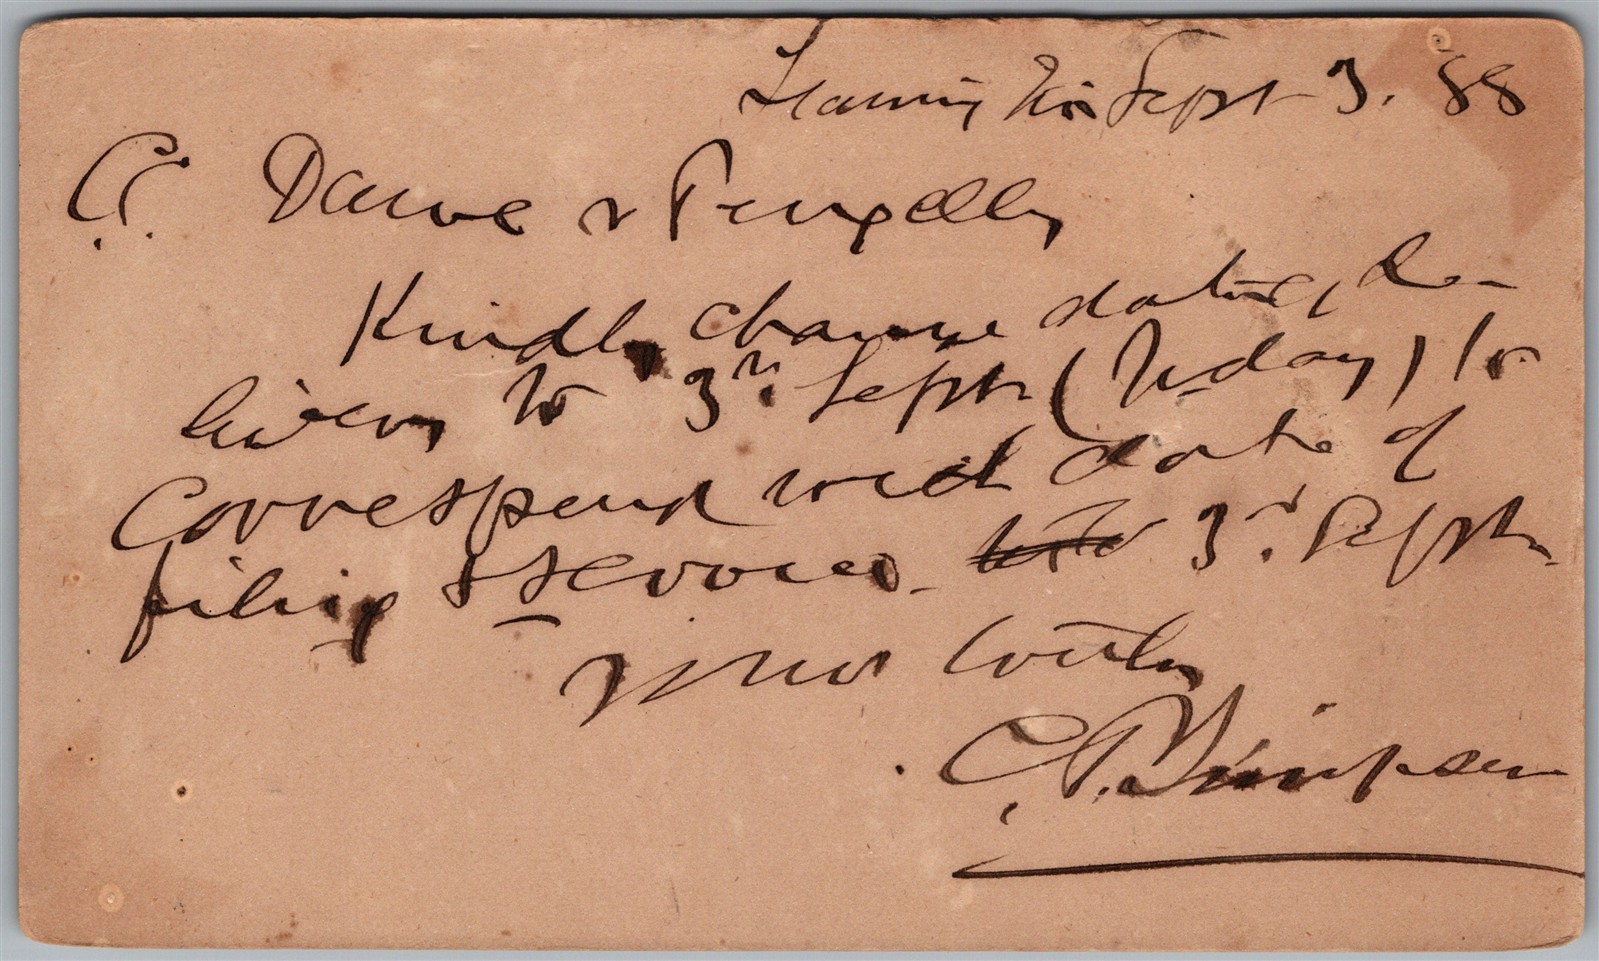 Leamington Sept 3. 88
C.C. Dawe & Pengelly
Kindly change date, de-
livery to 3rd Sept (Today) to
correspond with date of
filing & service 3rd Septr
Yours truly
C. P. Simpson